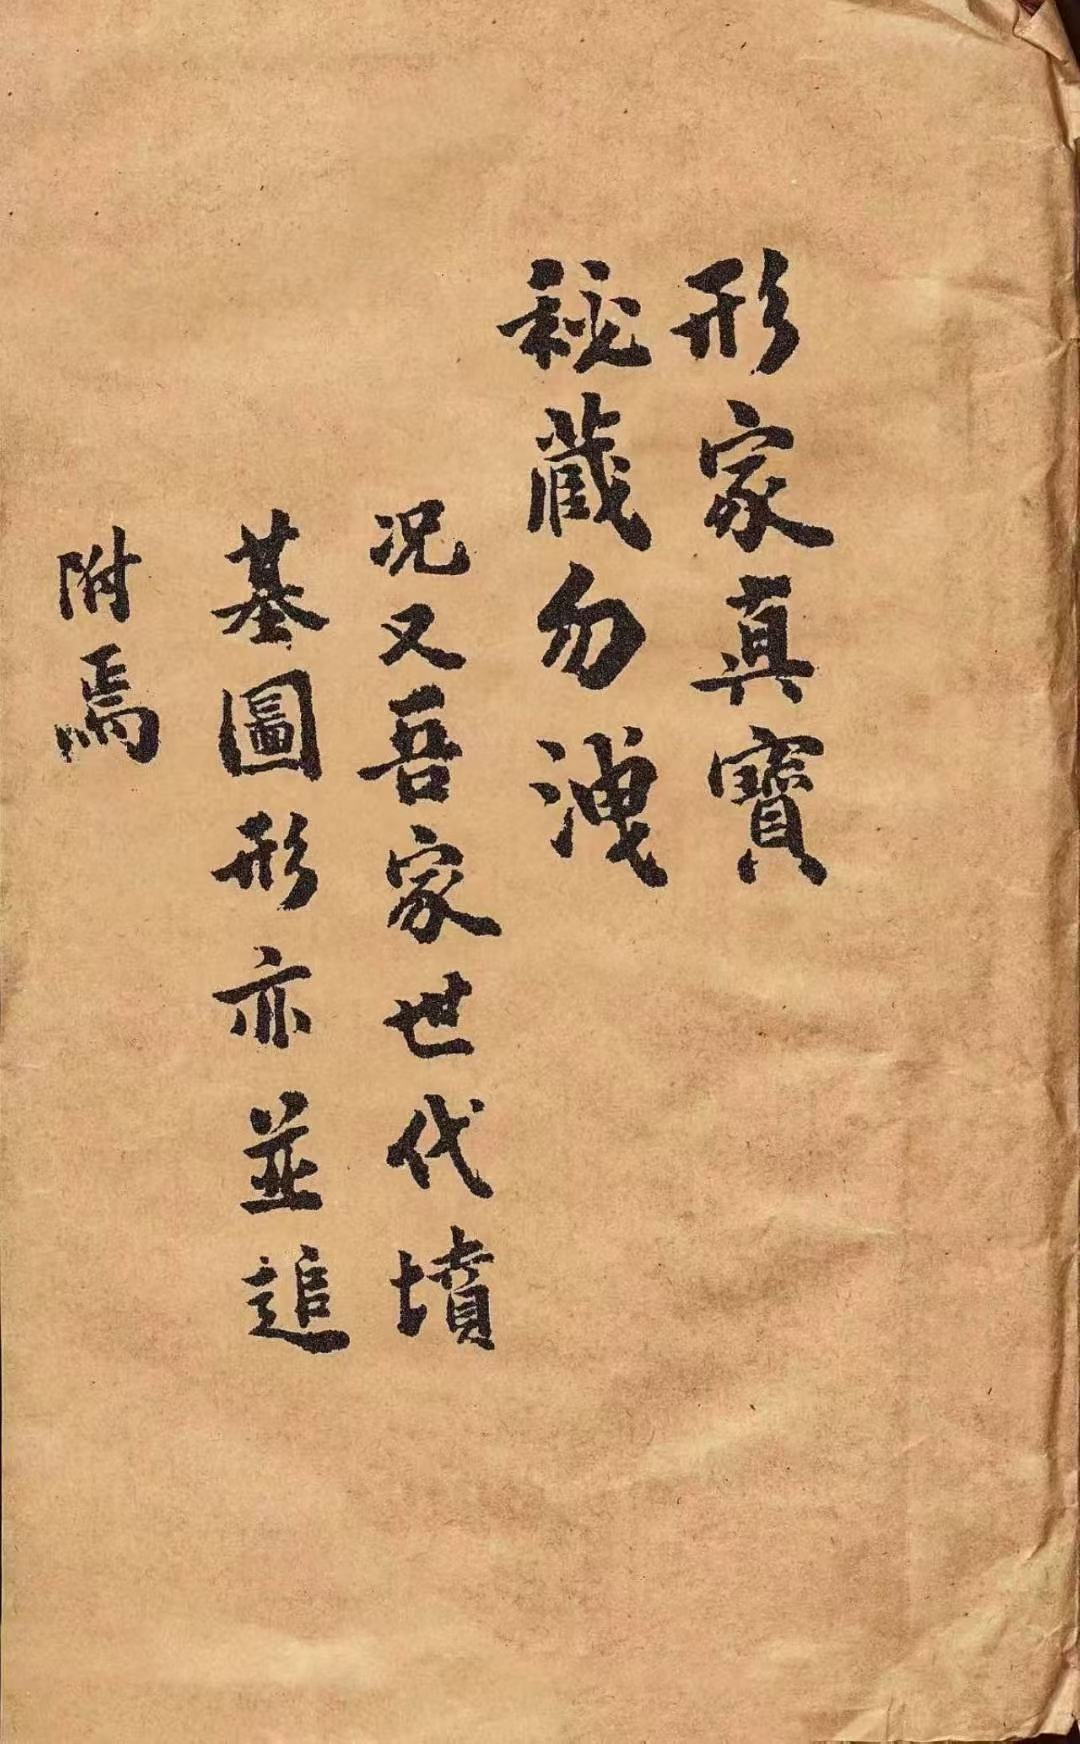 形家真寶
秘藏勿洩
況又吾家世代墳
墓圖形亦並追
附焉